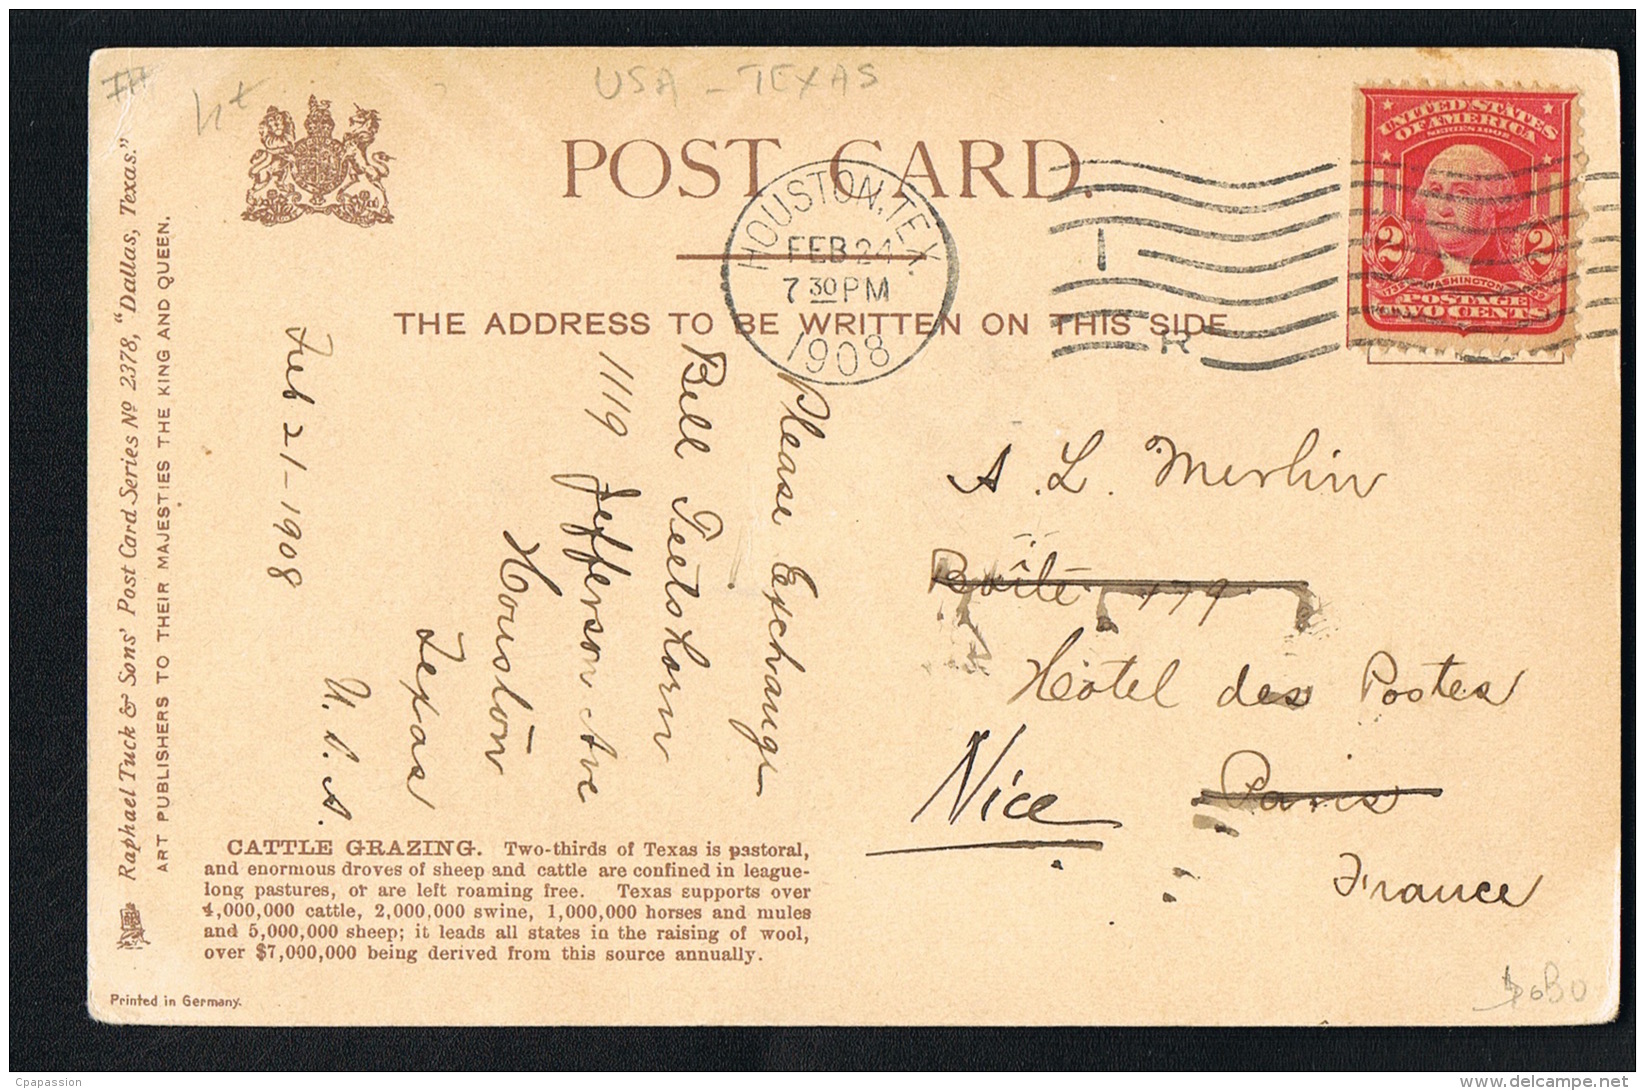 USA - TEXAS
POST CARD.
THE ADDRESS TO BE WRITTEN ON THIS SIDE
HOUSTON, TEX.
FEB 24
7 30 PM
1908
UNITED STATES
OF AMERICA
SERIES 1902
2 2
WASHINGTON
POSTAGE
TWO CENTS
Raphael Tuck & Sons' Post Card Series No 2378, "Dallas, Texas."
ART PUBLISHERS TO THEIR MAJESTIES THE KING AND QUEEN.
Please Exchange
Bill
1119 Jefferson Ave
Houston
Texas
U. S. A.
Feb 21-1908
A. L. Merlin
Boîte 179
Hôtel des Postes
Paris
Nice
France
CATTLE GRAZING. Two-thirds of Texas is pastoral,
and enormous droves of sheep and cattle are confined in league-
long pastures, or are left roaming free. Texas supports over
4,000,000 cattle, 2,000,000 swine, 1,000,000 horses and mules
and 5,000,000 sheep; it leads all states in the raising of wool,
over $7,000,000 being derived from this source annually.
Printed in Germany.
Cpapassion
www.delcampe.net